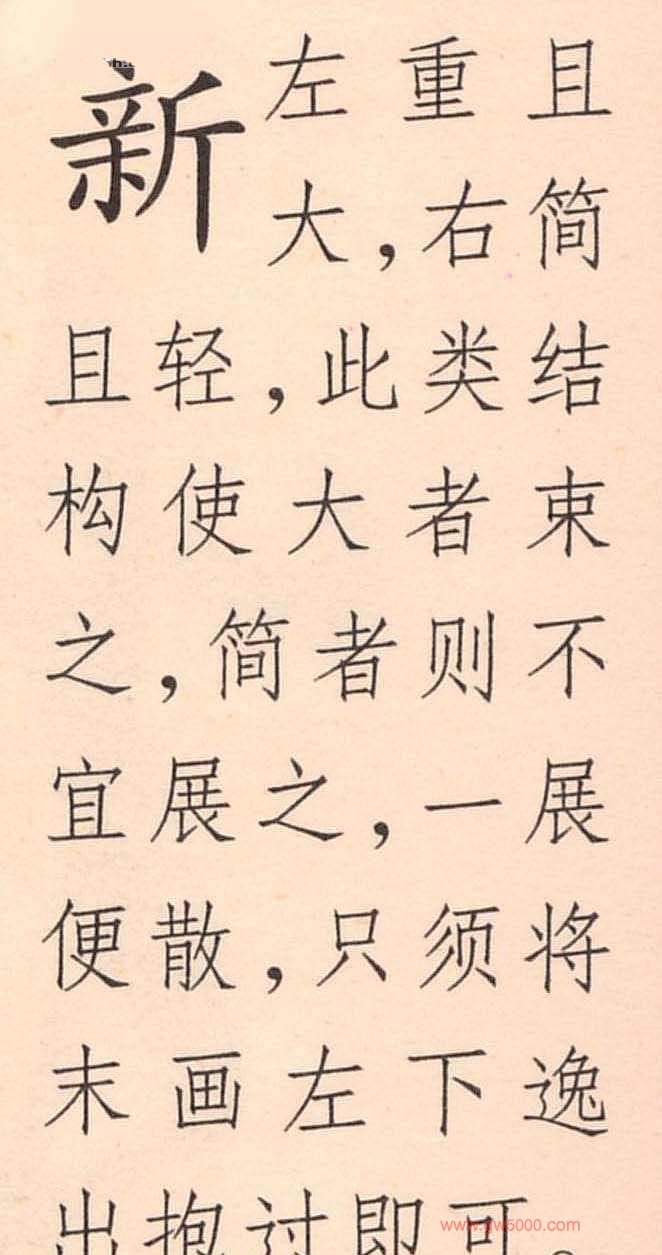 新
左重且
大，右简
且轻，此类结
构使大者束
之，简者则不
宜展之，一展
便散，只须将
末画左下逸
出抱过即可。